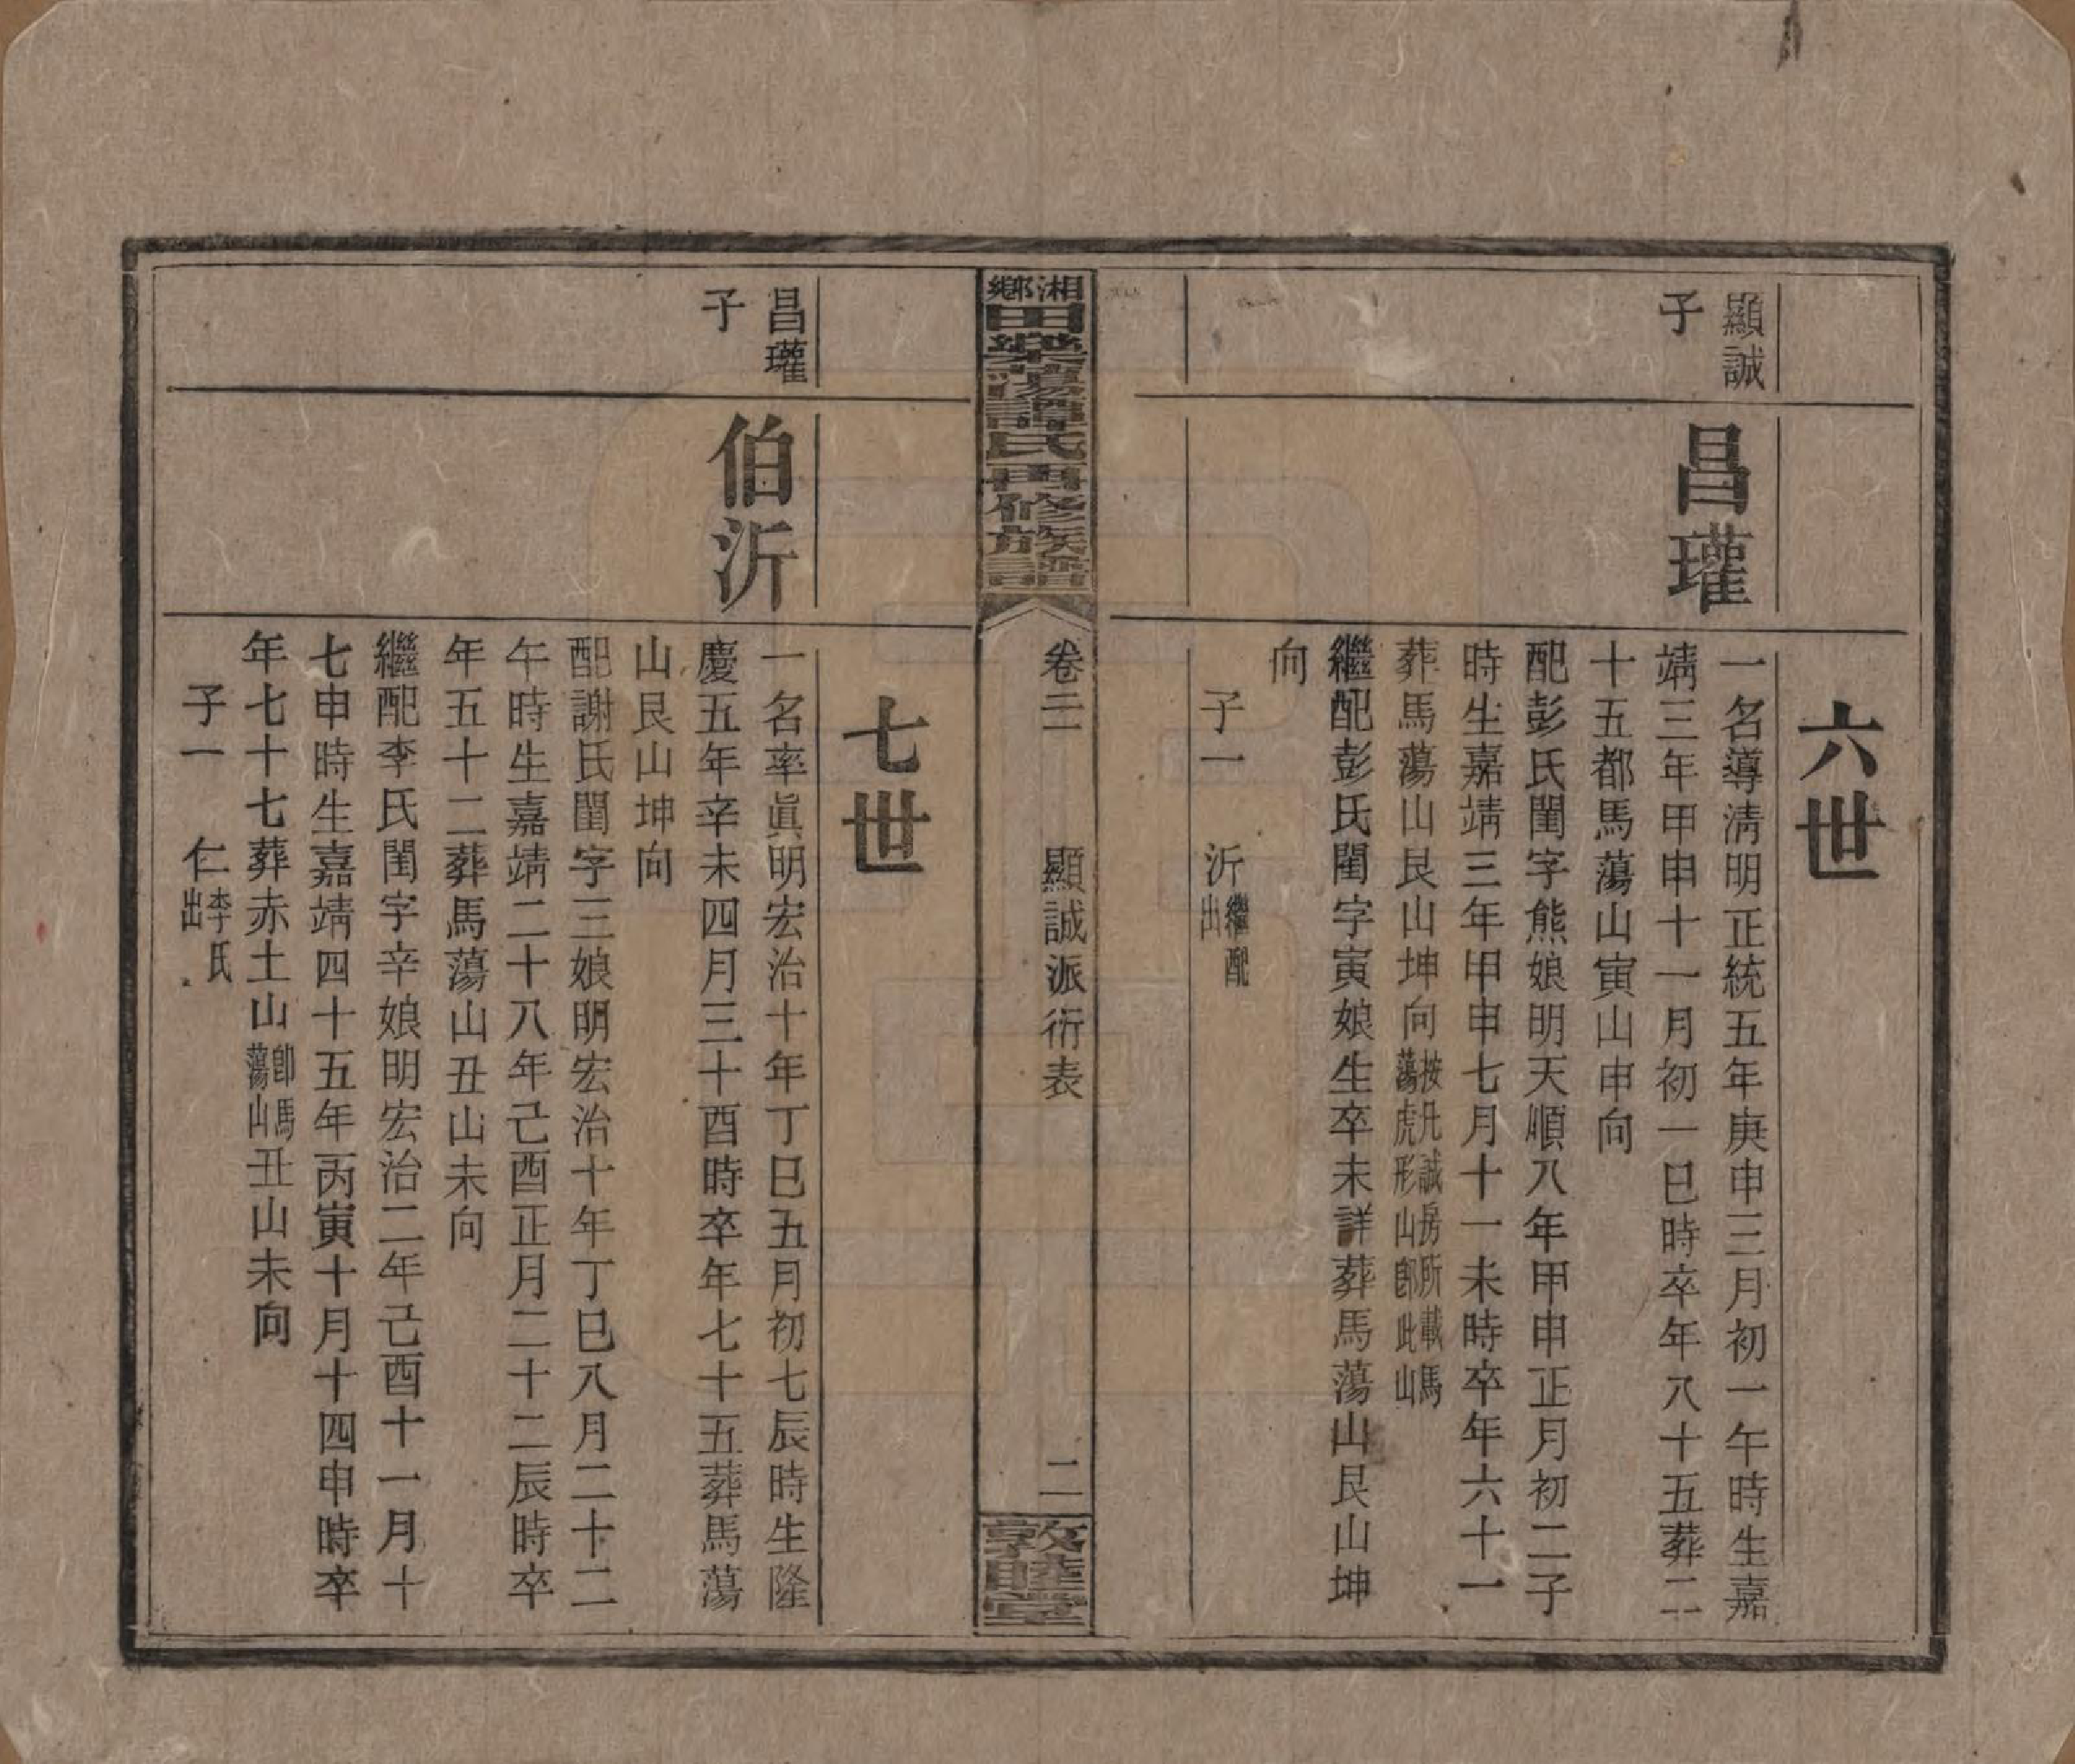 六世
顯誠
子
昌瓘
一名導淸明正統五年庚申三月初一午時生嘉
靖三年甲申十一月初一巳時卒年八十五葬二
十五都馬蕩山寅山申向
配彭氏閨字熊娘明天順八年甲申正月初二子
時生嘉靖三年甲申七月十一未時卒年六十一
葬馬蕩山艮山坤向按凡誠房所載馬蕩虎形山卽此山
繼配彭氏閨字寅娘生卒未詳葬馬蕩山艮山坤
向
子一　沂繼配出
湘鄉田業蕩譚氏再修族譜
卷二
顯誠派衍表
二
敦睦堂
七世
昌瓘
子
伯沂
一名率眞明宏治十年丁巳五月初七辰時生隆
慶五年辛未四月三十酉時卒年七十五葬馬蕩
山艮山坤向
配謝氏閨字三娘明宏治十年丁巳八月二十二
午時生嘉靖二十八年己酉正月二十二辰時卒
年五十二葬馬蕩山丑山未向
繼配李氏閨字辛娘明宏治二年己酉十一月十
七申時生嘉靖四十五年丙寅十月十四申時卒
年七十七葬赤土山卽馬蕩山丑山未向
子一　仁李氏出